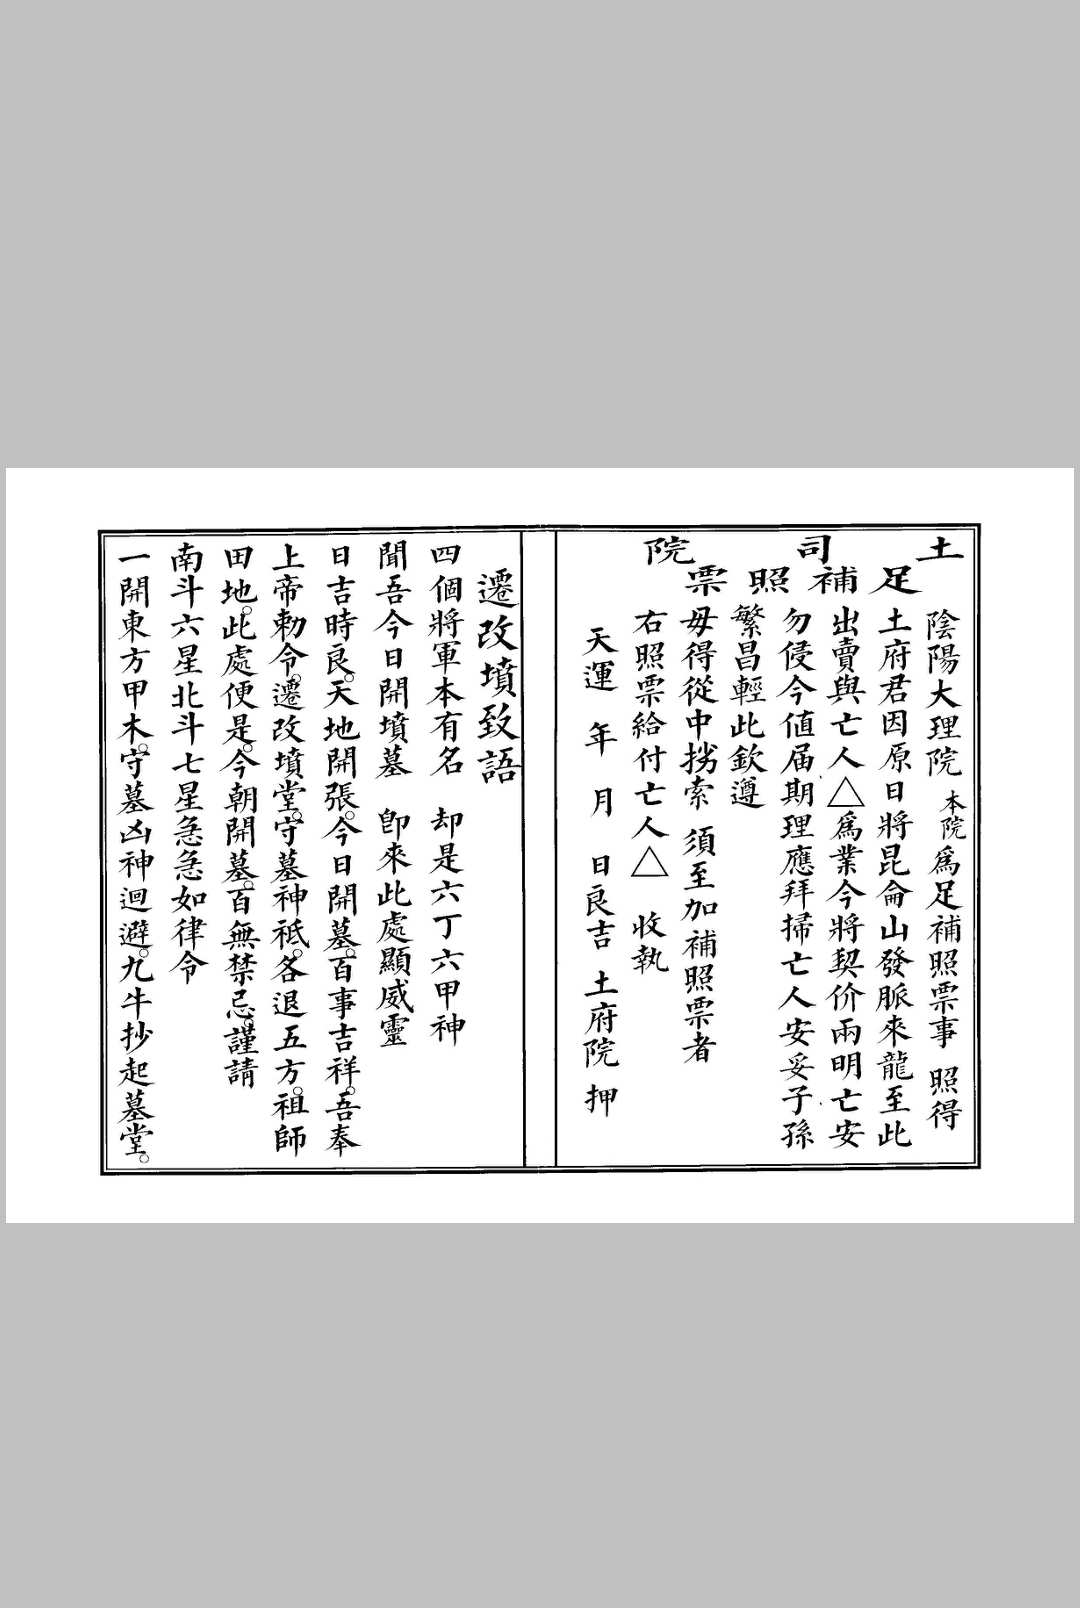 土司院
足補照票
陰陽大理院 本院爲足補照票事 照得
土府君因原日將昆侖山發脈來龍至此
出賣與亡人△爲業今將契价兩明亡安
勿侵今値届期理應拜掃亡人安妥子孫
繁昌輕此欽遵
毋得從中𢭏索 須至加補照票者
右照票給付亡人△ 收執
天運 年 月 日良吉 土府院 押
遷改墳致語
四個將軍本有名 却是六丁六甲神
聞吾今日開墳墓 卽來此處顯威靈
日吉時良。天地開張。今日開墓。百事吉祥。吾奉
上帝勅令。遷改墳堂。守墓神祇。各退五方。祖師
田地。此處便是。今朝開墓。百無禁忌。謹請
南斗六星北斗七星急急如律令
一開東方甲木。守墓凶神迴避。九牛抄起墓堂。